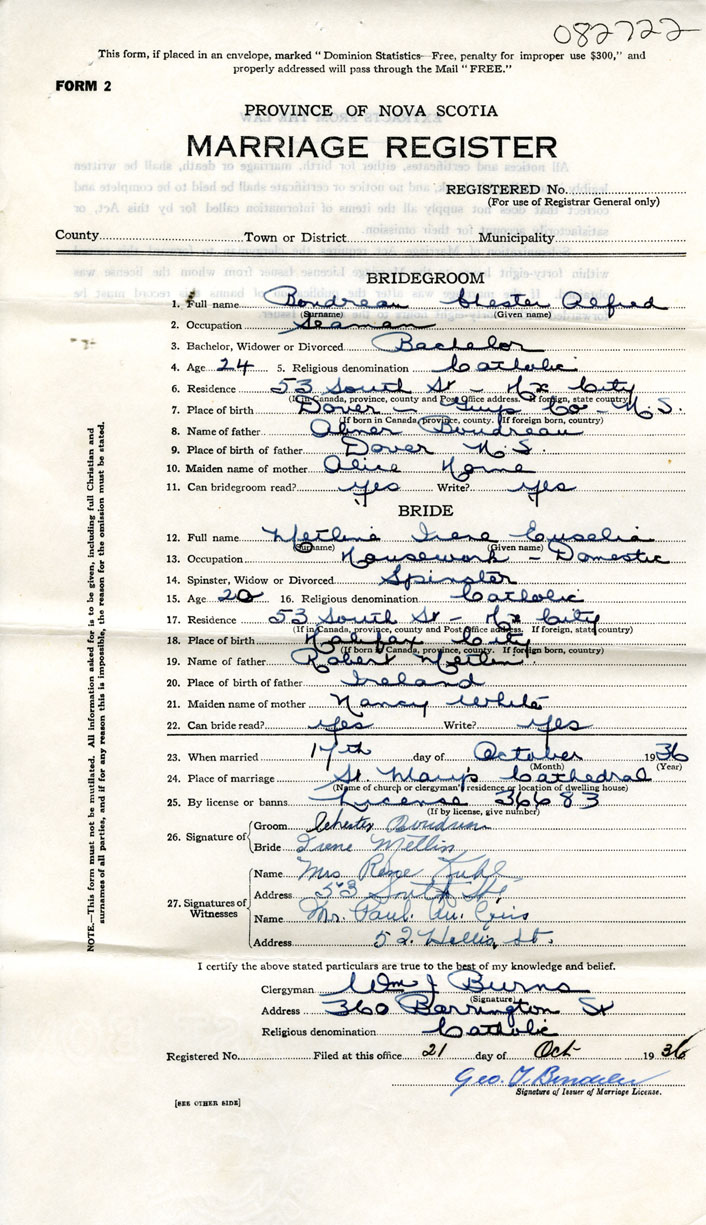 082722
This form, if placed in an envelope, marked "Dominion Statistics—Free, penalty for improper use $300," and
properly addressed will pass through the Mail "FREE."
FORM 2
PROVINCE OF NOVA SCOTIA
MARRIAGE REGISTER
REGISTERED No.
(For use of Registrar General only)
County Town or District Municipality
BRIDEGROOM
1. Full name Boudreau Chester Alfred
(Surname) (Given name)
2. Occupation Seaman
3. Bachelor, Widower or Divorced Bachelor
4. Age 24 5. Religious denomination Catholic
6. Residence 53 South St - Hx City
(If in Canada, province, county and Post Office address. If foreign, state country)
7. Place of birth Dover - Guys Co - N.S.
(If born in Canada, province, county. If foreign born, country)
8. Name of father Abner Boudreau
9. Place of birth of father Dover N.S.
10. Maiden name of mother Alice Horne
11. Can bridegroom read? yes Write? yes
BRIDE
12. Full name Metlin Irene Euselia
(Surname) (Given name)
13. Occupation Housework - Domestic
14. Spinster, Widow or Divorced Spinster
15. Age 20 16. Religious denomination Catholic
17. Residence 53 South St - Hx City
(If in Canada, province, county and Post Office address. If foreign, state country)
18. Place of birth Halifax City
(If born in Canada, province, county. If foreign born, country)
19. Name of father Robert Metlin
20. Place of birth of father Ireland
21. Maiden name of mother Nancy White
22. Can bride read? yes Write? yes
23. When married 17th day of October 1936
(Month) (Year)
24. Place of marriage St. Mary's Cathedral
(Name of church or clergyman's residence or location of dwelling house)
25. By license or banns License 36683
(If by license, give number)
26. Signature of Groom Chester Boudreau
Bride Irene Metlin
27. Signatures of Witnesses Name Mrs. Rose Kuhl
Address 53 South St.
Name Mr. Paul
Address 52 Hollis St.
I certify the above stated particulars are true to the best of my knowledge and belief.
Clergyman Wm J Burns
(Signature)
Address 360 Barrington St
Religious denomination Catholic
Registered No. Filed at this office 21 day of Oct 1936
Geo.
Signature of Issuer of Marriage License.
[SEE OTHER SIDE]
NOTE.—This form must not be mutilated. All information asked for is to be given, including full Christian and
surnames of all parties, and if for any reason this is impossible, the reason for the omission must be stated.